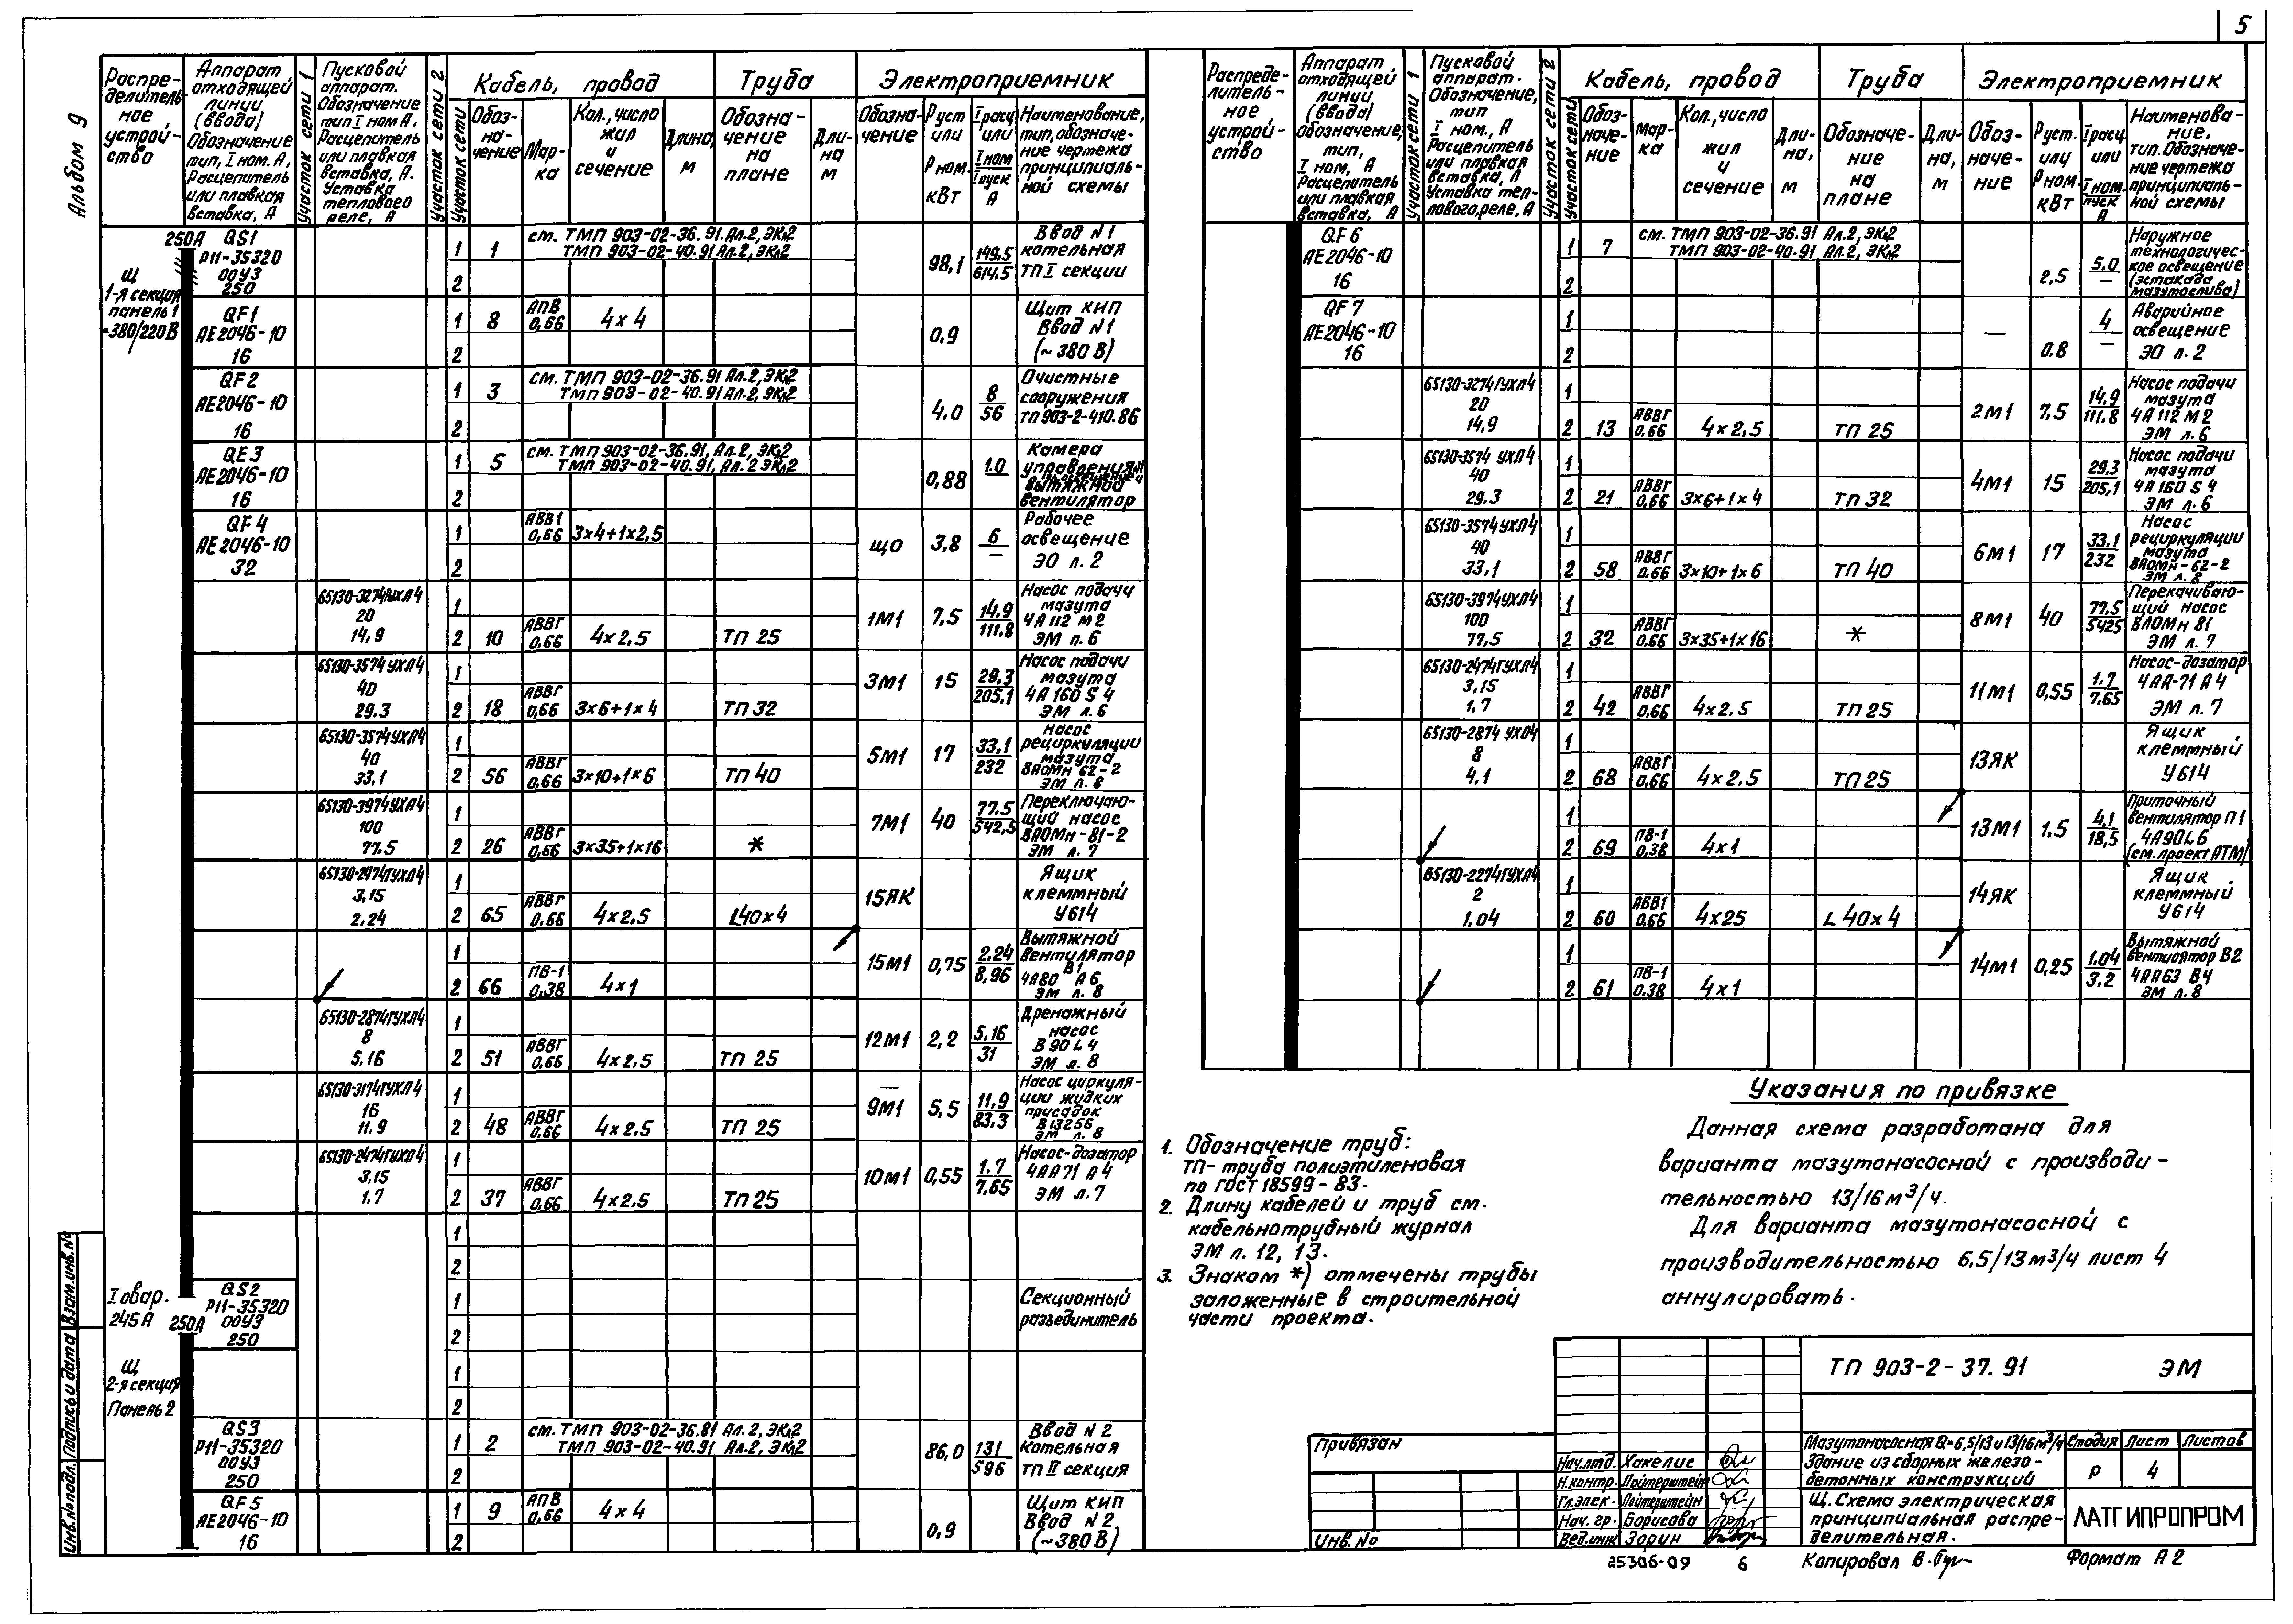 5
Альбом 9
Распределительное устройство
Аппарат отходящей линии (ввода) Обозначение тип, I ном. А, Расцепитель или плавкая вставка, А
Участок сети 1
Пусковой аппарат. Обозначение тип I ном А, Расцепитель или плавкая вставка, А. Уставка теплового реле, А
Участок сети 2
Участок сети
Кабель, провод
Обозначение
Марка
Кол., число жил и сечение
Длина, м
Труба
Обозначение на плане
Длина м
Электроприемник
Обозначение
Р уст или Р ном. кВт
I расч или I ном I пуск А
Наименование, тип, обозначение чертежа принципиальной схемы
Щ 1-я секция панель 1 ~380/220 В
250А QS1 Р11-35320 00У3 250
1 1 см. ТМП 903-02-36.91. Ал.2, ЭК1,2
ТМП 903-02-40.91 Ал.2, ЭК1,2
2
98,1 149,5 614,5 Ввод N1 котельная ТП I секции
QF1 АЕ2046-10 16
1 8 АПВ 0,66 4×4
2
0,9 Щит КИП Ввод N1 (~380 В)
QF2 АЕ2046-10 16
1 3 см. ТМП 903-02-36.91 Ал.2, ЭК1,2
ТМП 903-02-40.91 Ал.2, ЭК1,2
2
4,0 8 56 Очистные сооружения ТП 903-2-410.86
QE3 АЕ2046-10 16
1 5 см. ТМП 903-02-36.91, Ал.2, ЭК1,2
ТМП 903-02-40.91, Ал.2 ЭК1,2
2
0,88 1.0 Камера управления вытяжной вентилятор
QF4 АЕ2046-10 32
1 АВВГ 0,66 3×4+1×2,5
2
ЩО 3,8 6 — Рабочее освещение ЭО л. 2
Б5130-3274ГУХЛ4 20 14,9
1
2 10 АВВГ 0.66 4×2,5 ТП 25
1М1 7,5 14,9 111,8 Насос подачи мазута 4А112М2 ЭМ л. 6
Б5130-3574 УХЛ4 40 29,3
1
2 18 АВВГ 0,66 3×6+1×4 ТП 32
3М1 15 29,3 205,1 Насос подачи мазута 4А160S4 ЭМ л.6
Б5130-3574УХЛ4 40 33,1
1
2 56 АВВГ 0,66 3×10+1×6 ТП 40
5М1 17 33,1 232 Насос рециркуляции мазута ВАОМН 62-2 ЭМ л. 8
Б5130-3974УХЛ4 100 77,5
1
2 26 АВВГ 0.66 3×35+1×16 *
7М1 40 77,5 542,5 Переключающий насос ВАОМН-81-2 ЭМ л. 7
Б5130-2474ГУХЛ4 3,15 2,24
1
2 65 АВВГ 0.66 4×2,5 L40×4
15ЯК Ящик клеммный У614
1
2 66 ПВ-1 0,38 4×1
15М1 0,75 2,24 8,96 Вытяжной вентилятор В1 4А80 А6 ЭМ л. 8
Б5130-2874ГУХЛ4 8 5,16
1
2 51 АВВГ 0,66 4×2,5 ТП 25
12М1 2,2 5,16 31 Дренажный насос В90L4 ЭМ л. 8
Б5130-3174ГУХЛ4 16 11,9
1
2 48 АВВГ 0,66 4×2,5 ТП 25
— 9М1 5,5 11,9 83,3 Насос циркуляции жидких присадок В132S6 ЭМ л. 8
Б5130-2474ГУХЛ4 3,15 1,7
1
2 37 АВВГ 0,66 4×2,5 ТП 25
10М1 0,55 1.7 7,65 Насос-дозатор 4АА71А4 ЭМ л.7
1
2
I овар. 245А 250А
QS2 Р11-35320 00У3 250
1
2
Секционный разъединитель
Щ 2-я секция Панель 2
1
2
QS3 Р11-35320 00У3 250
1 2 см. ТМП 903-02-36.81 Ал.2, ЭК1,2
ТМП 903-02-40.91 Ал.2, ЭК1,2
2
86,0 131 596 Ввод N2 Котельная ТП II секция
QF5 АЕ2046-10 16
1 9 АПВ 0,66 4×4
2
0,9 Щит КИП Ввод N2 (~380В)
Распределительное устройство
Аппарат отходящей линии (ввода) Обозначение, тип, I ном, А Расцепитель или плавкая вставка, А
Участок сети 1
Пусковой аппарат. Обозначение, тип I ном., А Расцепитель или плавкая вставка, А Уставка теплового, реле, А
Участок сети 2
Участок сети
Кабель, провод
Обозначение
Марка
Кол., число жил и сечение
Длина, м
Труба
Обозначение на плане
Длина, м
Электроприемник
Обозначение
Р уст. или Р ном. кВт
I расч или I ном. пуск А
Наименование, тип. Обозначение чертежа принципиальной схемы
QF6 АЕ2046-10 16
1 7 см. ТМП 903-02-36.91 Ал.2, ЭК1,2
ТМП 903-02-40.91 Ал.2, ЭК1,2
2
2,5 5,0 — Наружное технологическое освещение (эстакада мазутослива)
QF7 АЕ2046-10 16
1
2
— 0.8 4 — Аварийное освещение ЭО л. 2
Б5130-3274ГУХЛ4 20 14,9
1
2 13 АВВГ 0,66 4×2,5 ТП 25
2М1 7,5 14,9 111.8 Насос подачи мазута 4А112М2 ЭМ л.6
Б5130-3574 УХЛ4 40 29.3
1
2 21 АВВГ 0,66 3×6+1×4 ТП 32
4М1 15 29.3 205,1 Насос подачи мазута 4А160S4 ЭМ л.6
Б5130-3574УХЛ4 40 33,1
1
2 58 АВВГ 0.66 3×10+1×6 ТП 40
6М1 17 33.1 232 Насос рециркуляции мазута ВАОМН-62-2 ЭМ л. 8
Б5130-3974УХЛ4 100 77,5
1
2 32 АВВГ 0,66 3×35+1×16 *
8М1 40 77.5 5425 Перекачивающий насос ВАОМН 81 ЭМ л. 7
Б5130-2474ГУХЛ4 3,15 1,7
1
2 42 АВВГ 0.66 4×2,5 ТП25
11М1 0,55 1.7 7,65 Насос-дозатор 4АА-71А4 ЭМ л.7
Б5130-2874 УХЛ4 8 4,1
1
2 68 АВВГ 0,66 4×2,5 ТП25
13ЯК Ящик клеммный У614
1
2 69 ПВ-1 0,38 4×1
13М1 1,5 4,1 18,5 Приточный вентилятор П1 4А90L6 (см. проект АТМ)
Б5130-2274ГУХЛ4 2 1.04
1
2 60 АВВГ 0.66 4×25 L 40×4
14ЯК Ящик клеммный У614
1
2 61 ПВ-1 0.38 4×1
14М1 0,25 1.04 3,2 Вытяжной вентилятор В2 4АА63 В4 ЭМ л.8
1. Обозначение труб:
ТП- труба полиэтиленовая
по ГОСТ 18599-83.
2. Длину кабелей и труб см.
кабельнотрубный журнал
ЭМ л. 12, 13.
3. Знаком *) отмечены трубы
заложенные в строительной
части проекта.
Указания по привязке
Данная схема разработана для
варианта мазутонасосной с производи-
тельностью 13/16 м³/ч.
Для варианта мазутонасосной с
производительностью 6,5/13 м³/ч лист 4
аннулировать.
ТП 903-2-37.91 ЭМ
Привязан
Инв. №
Нач. отд. Хакелис
Н.контр. Лойтерштейн
Гл.элек. Лойтерштейн
Нач. гр. Борисова
Вед.инж Зорин
Мазутонасосная Q=6,5/13 и 13/16 м³/ч
Здание из сборных железо-
бетонных конструкций
Стадия Лист Листов
Р 4
Щ. Схема электрическая
принципиальная распре-
делительная.
ЛАТГИПРОПРОМ
25306-09 6
Копировал
Формат А2
Инв.№ подл. Подпись и дата Взам.инв.№